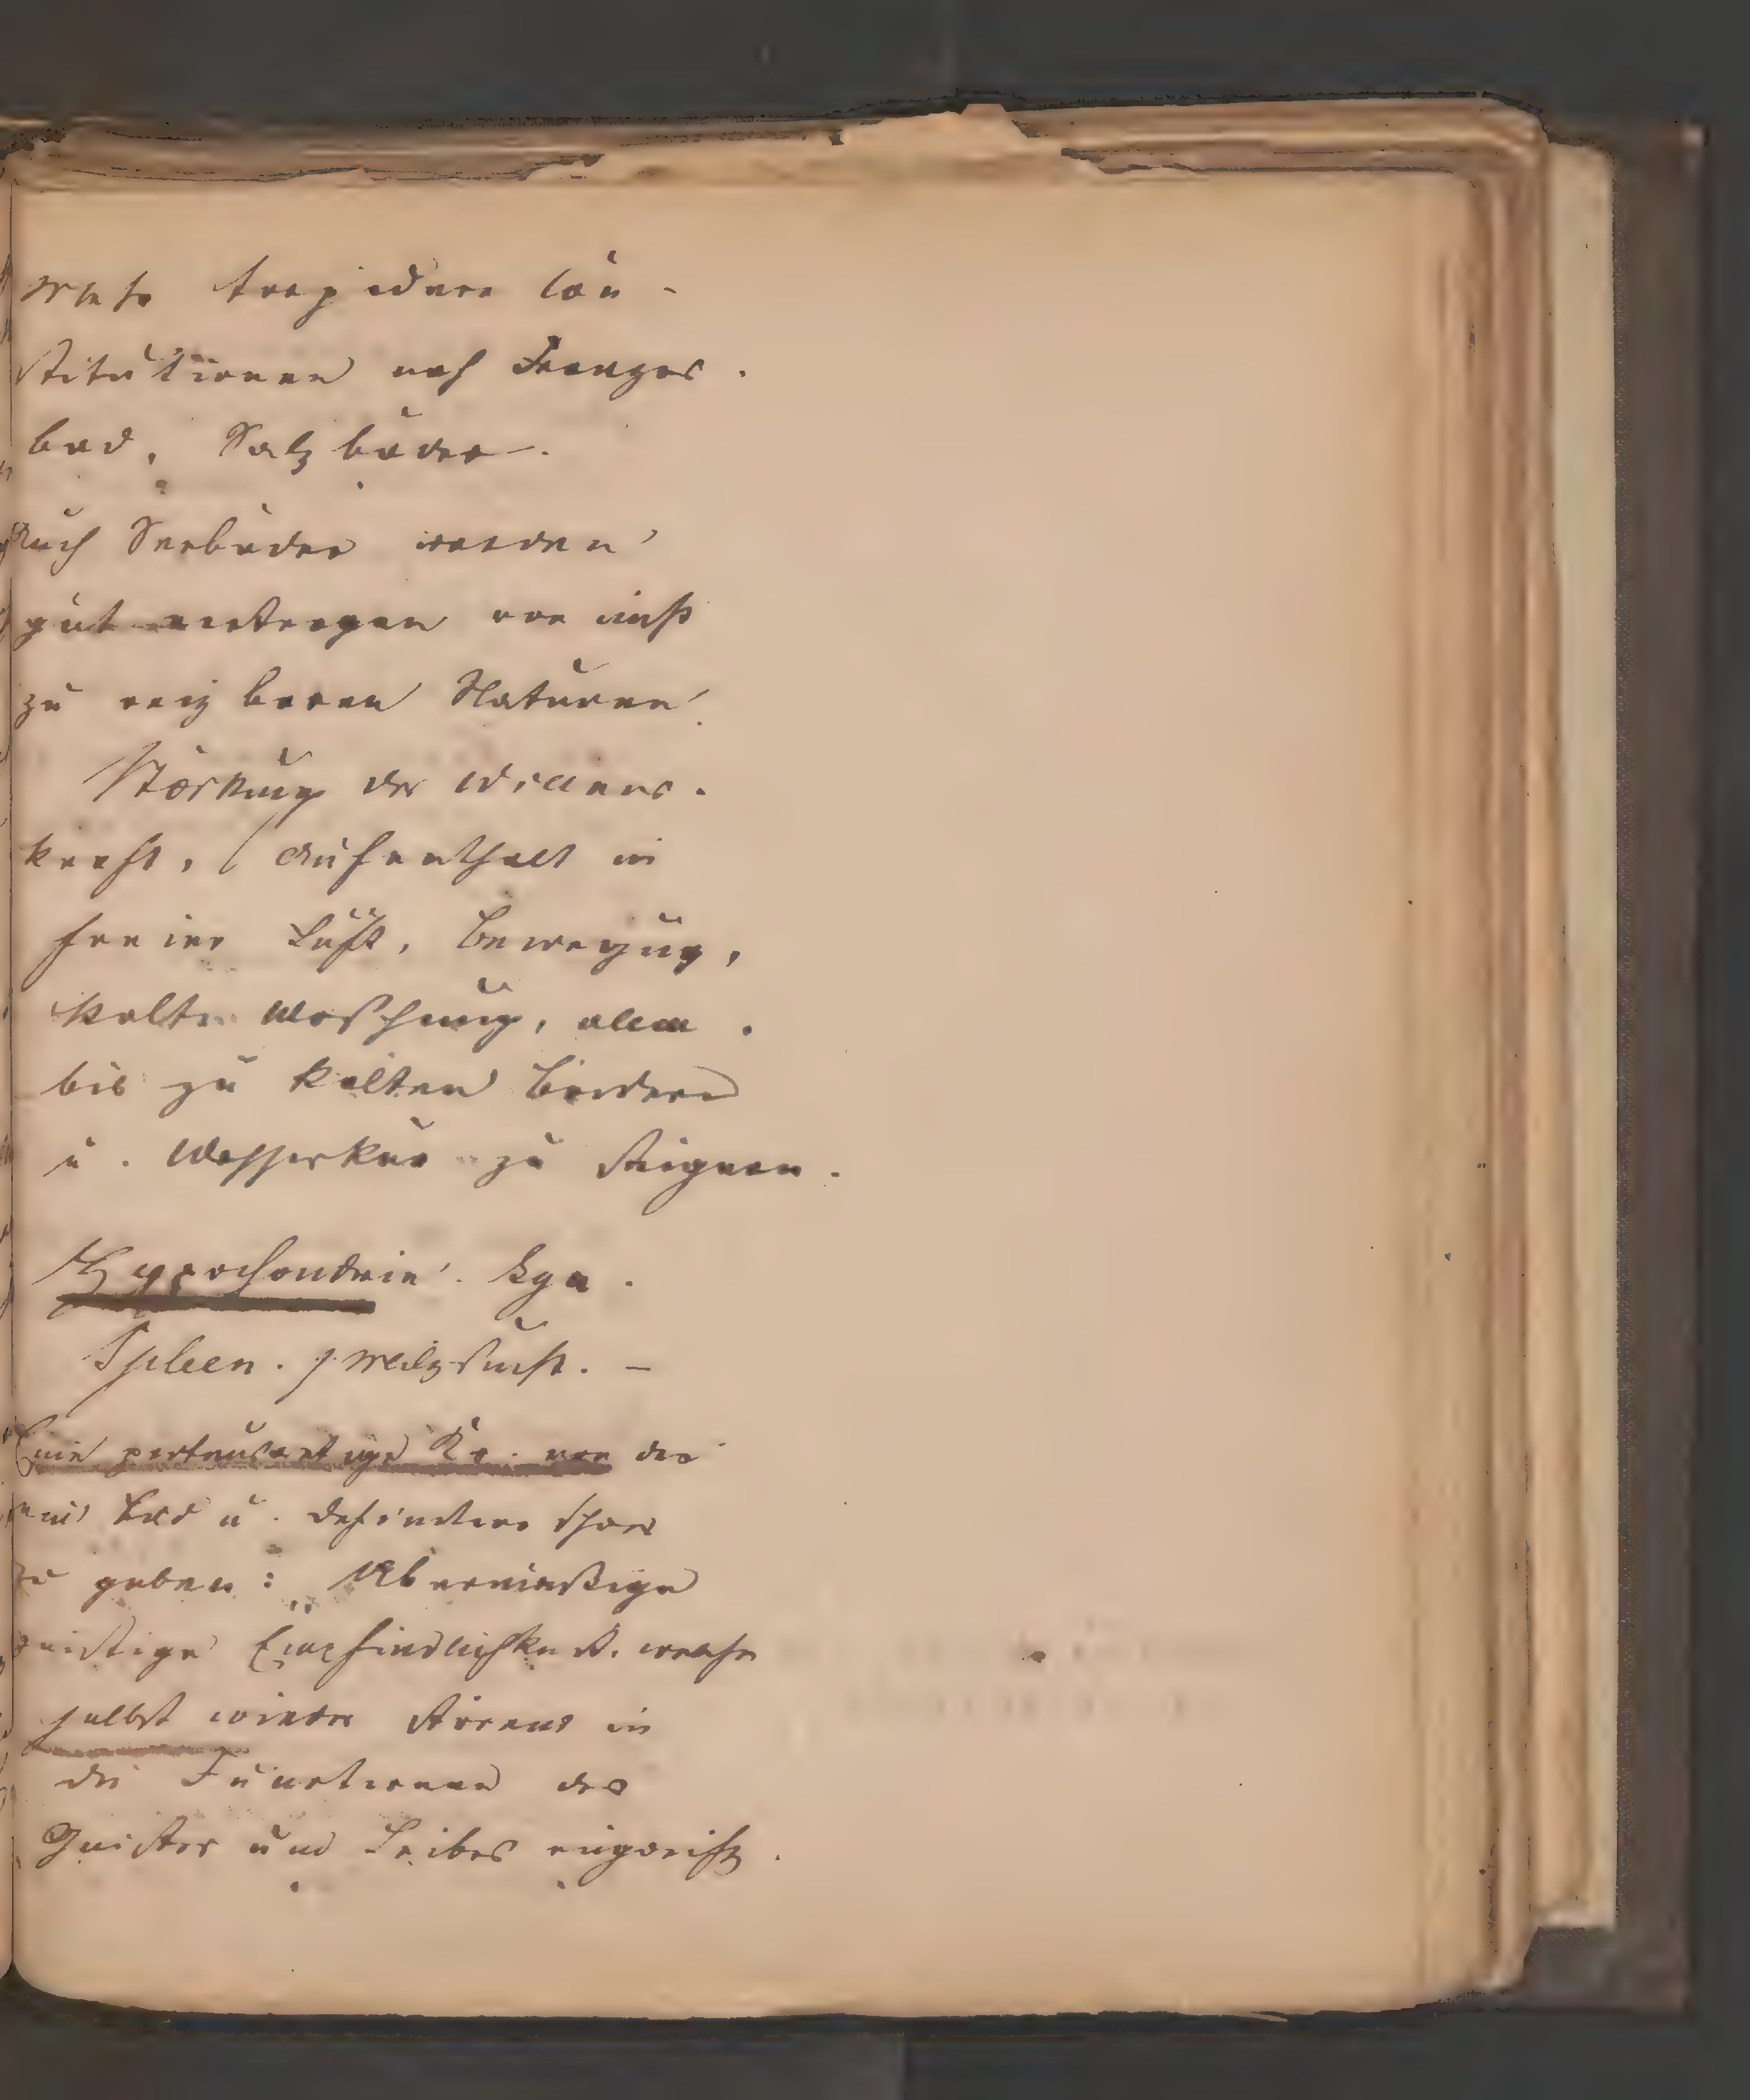 mehr torpidere Con-
stitutionen nach Franzes-
bad, Salzbäder.
Auch Seebäder werden
gut vertragen von nicht
zu reizbaren Naturen.
Stärkung der Willens-
kraft, Aufenthalt in
freier Luft, Bewegung,
kalte Waschung,
bis zu kalten Bädern
u. Wasserkur zu steigern.
Hypochondrie.
Spleen. Milzsucht. –
Eine proteusartige Kr. von der
u. Definition schwer
zu geben: Übermäßige
geistige Empfindlichkeit, welche
selbst wieder störend in
die Functionen des
Geistes und Leibes eingreift.